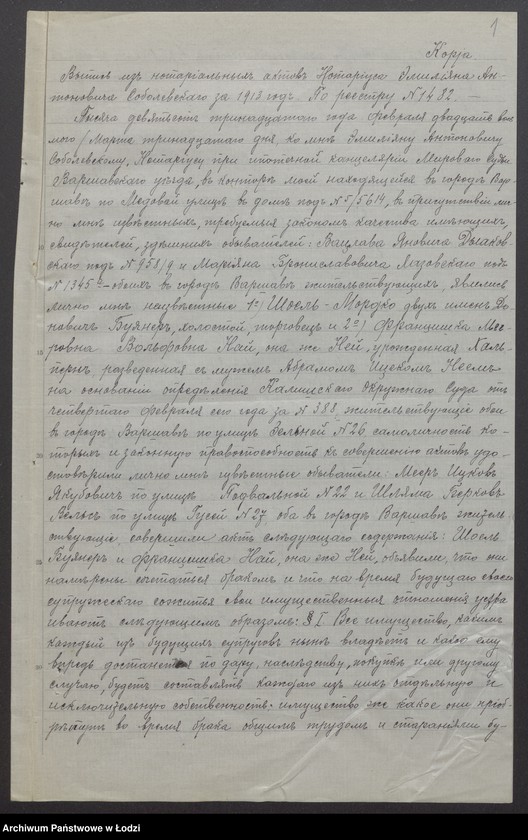 1
Копія
Выпись изъ нотаріальныхъ актовъ Нотаріуса Эмиліяна Ан-
тоновича Соболевскаго за 1913 годъ. По реестру N 1482. —
Тысяча девятьсотъ тринадцатаго года февраля двадцать вось-
мого / Марта тринадцатаго дня, ко мнѣ Эмиліяну Антоновичу
Соболевскому, Нотаріусу при ипотечной канцеляріи Мирового Судьи
Варшавскаго уѣзда, въ конторѣ моей находящейся въ городѣ Вар-
шавѣ по Медовой улицѣ въ домѣ подъ N 5/5614, въ присутствіи лич-
но мнѣ извѣстныхъ, требуемыя закономъ качества имѣющихъ,
свидѣтелей, здѣшнихъ обывателей: Вацлава Яновича
скаго подъ N 958/9 и Маріяна Брониславовича Мазовскаго подъ
N 1345 – обоихъ въ городѣ Варшавѣ жительствующихъ, явились
лично мнѣ неизвѣстные 1º) Шоель-Мордко двухъ именъ До-
новичъ Буянеръ, холостой, торговецъ и 2º) Францишка Мее-
ровна Вольфовна Най, она же Ней, урожденная Халь-
пернъ разведенная съ мужемъ Абрамомъ Ицекомъ Неемъ
на основаніи опредѣленія Калишскаго Окружнаго Суда отъ
четвертаго февраля сего года за N 388, жительствующіе оба
въ городѣ Варшавѣ по улицѣ Зельной N 26, самоличность ко-
торыхъ и законную правоспособность къ совершенію актовъ удо-
стовѣрили лично мнѣ извѣстные обыватели: Мееръ Ицковъ
Якубовичъ по улицѣ Подвальной N 22 и Шляма Берковъ
Вельсъ по улицѣ Гусей N 27 оба въ городѣ Варшавѣ житель-
ствующіе, совершили актъ слѣдующаго содержанія: Шоель
Буянеръ и Францишка Най, она же Ней, объявили, что они
намѣрены сочетаться бракомъ и что на время будущаго своего
супружескаго сожитья свои имущественныя отношенія устра-
иваютъ слѣдующимъ образомъ: § I Все имущество, какимъ
каждый изъ будущихъ супруговъ нынѣ владѣетъ и какое ему
впредь достанется по дару, наслѣдству, покупкѣ или другому
случаю, будетъ составлять каждаго изъ нихъ отдѣльную и
исключительную собственность; имущество же какое они пріоб-
рѣтутъ во время брака общимъ трудомъ и стараніями бу-
Archiwum Państwowe w Łodzi